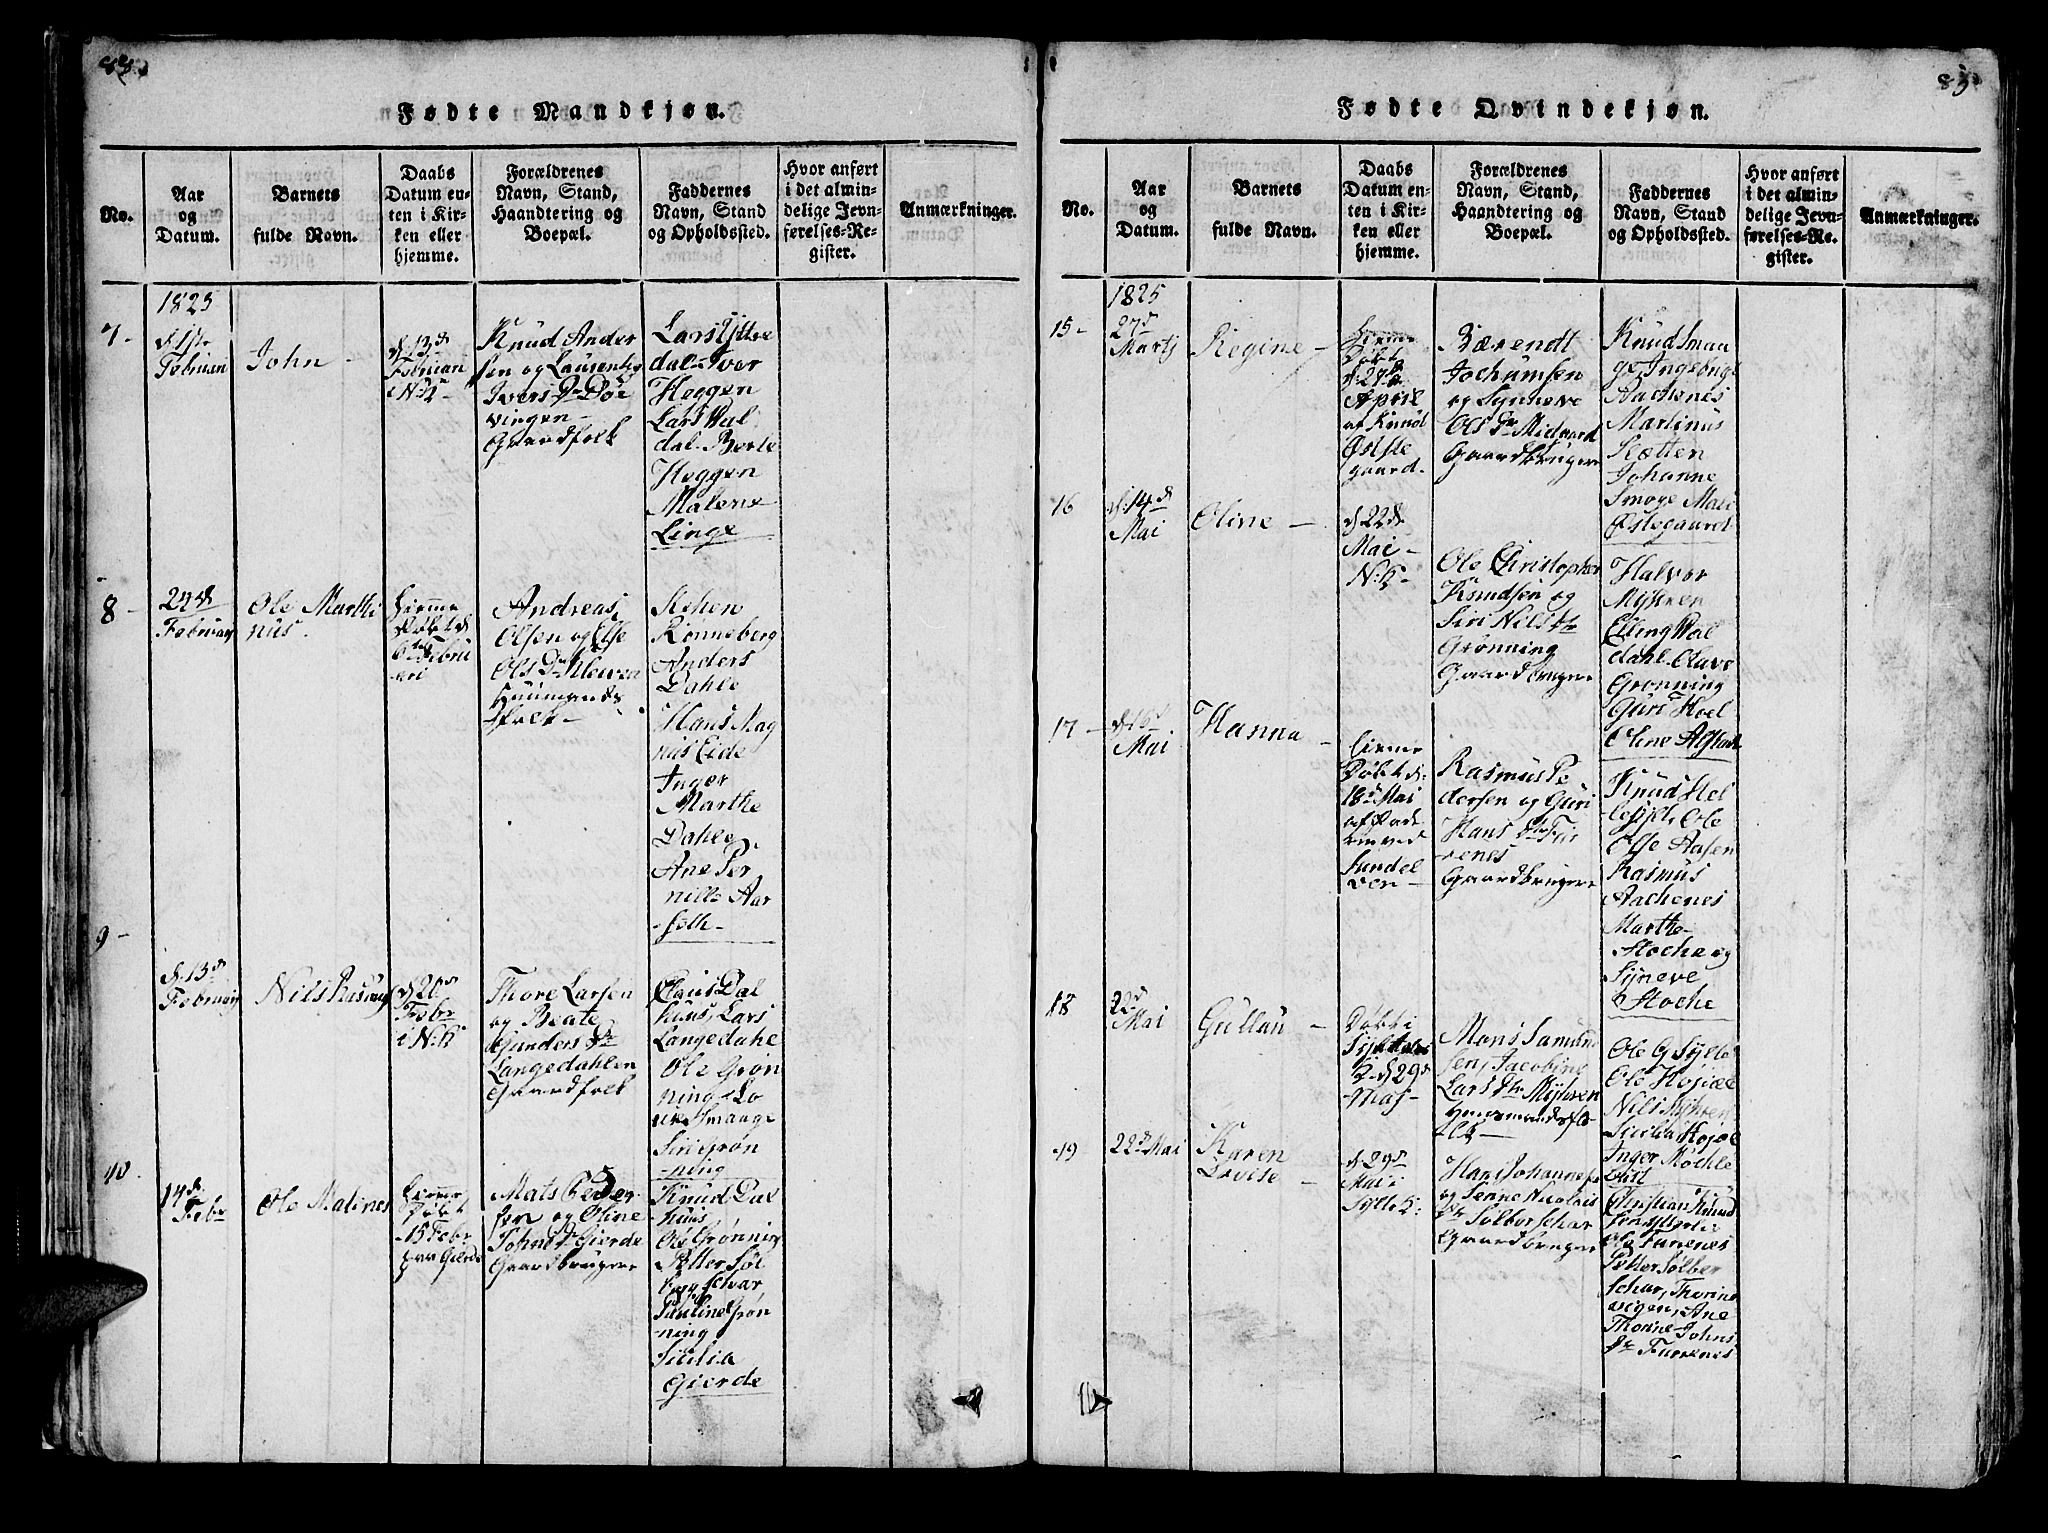 88.
Fødte Mandkjøn.
No.
Aar
og
Datum.
Barnets
fulde Navn.
Daabs
Datum en-
ten i Kir-
ken eller
hjemme.
Forældrenes
Navn, Stand,
Haandtering og
Boepæl.
Faddernes
Navn, Stand
og Opholdssted.
Hvor anført
i det almin-
delige Jevn-
førelses-Re-
gister.
Anmærkninger.
7-
1825
d. 1ste
Februari
John -
d. 13d
Februari
i N:K-
Knud Ander
sen og
Ivers Dr Døe
vingen -
Gaardfolk
Lars Yttre
dal- Iver
Heggen
Lars Wal
dal- Berte
Heggen
Malene
Linge
8-
24d
Februari
Ole Marthi
nus.
hiemme
døbt d.
Februi
ari
Andreas
Olsen og Else
Ols Dr
Huusmands
folk -
Stephen
Rønneberg
Anders
Dahle
Hans Mag
nus Eide
Inger
Marthe
Dahle
Ane Per
nille Aar
seth -
9-
d. 13d
Februari
Nils Rasmus
d. 20d
Febr
i N:K
Thore Larsen
og Beate
Gunders Dr
Langedahlen
Gaardfolk
Claus Dal
huus, Lars
Langedahl
Ole Grøn
ning - Lo
vise Smange
Siri Grøn
ning
10-
14d
Febr
Ole Malines
hiemme
døbt
15 Febr
paa Gierde
Mats Peder
sen og Oline
Johns Dr Gierde
Gaardbrugere
Knud Dal
huus
Ole Grønning
Petter Søl
berg schar
Pauline Grøn
ning
Sicilia
Gierde
Fødte Qvindekjøn.
No.
Aar
og
Datum.
Barnets
fulde Navn.
Daabs
Datum en-
ten i Kir-
ken eller
hjemme.
Forældrenes
Navn, Stand,
Haandtering og
Boepæl.
Faddernes
Navn, Stand
og Opholdssted.
Hvor anført
i det almin-
delige Jevn-
førelses-Re-
gister.
Anmærkninger.
15-
1825
27d
Martj
Regine -
hiemme
Døbt
April
af Knud
Østle
gaard.
Bærendt
Jochumsen
og Synneve
Ols Dr Midgaard
Gaardbrugere
Knud Sman
ge, Ingeborg
Aachenes
Martinus
Sætten
Johanne
Smøge Mari
Østegaard
16
d. 14d
Mai
Oline -
d. 22d
Mai -
N:K-
Ole Christopher
Knudsen og
Siri Nils Dr
Grønning
Gaardbrugere
Halvor
Myhren
Elling Wal
dahl- Olave
Grønning
Guri Hoel
Oline
17-
d. 16d
Mai
Hanna -
hiemme
Døbt d:
18d Mai
af
Rasmus Pe
dersen og Guri
Hans Dtr Fur
renes
Gaardbrugere
Knud Hel
Ole
Olse Aasen
Rasmus
Aachenes
Marthe
Stoche og
Syneve
Stoche
18
22d
Mai
Gullau -
Døbt i
d. 29d
Mai -
Mons Samund
sen, Jacobine
Lars Dtr Myhren
Huusmandsfo
lk -
Ole G Sylte
Ole Høiæe
Nils Myhren
Sicilia
Inger Mochle
bust
19
22d Mai
Karen
Lovise -
d. 29d
Mai i
Sylte K:
Hans Johannes
og Senne Nicolais
Dtr Sølberschar
Gaardbrugere
Christian Knud
sen
Ole Furenes
Petter Sølber
schar, Thorine
vigen, Ane
Thorine Johns
Dr Furenes